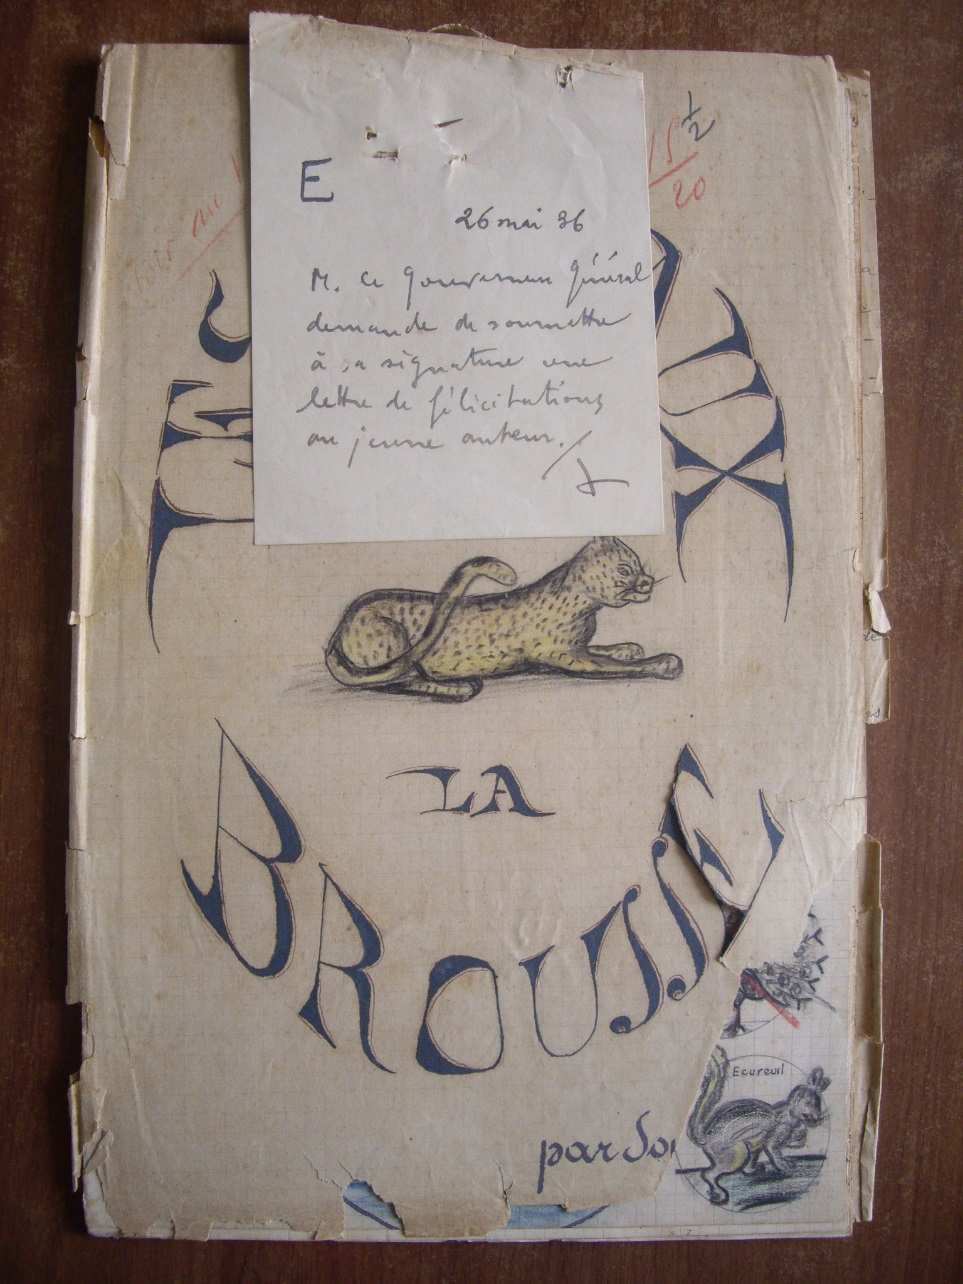 E
26 mai 36
M. le Gouverneur général
demande de soumettre
à sa signature une
lettre de félicitations
au jeune auteur.
15 1/2
20
LA
BROUSSE
par
Ecureuil